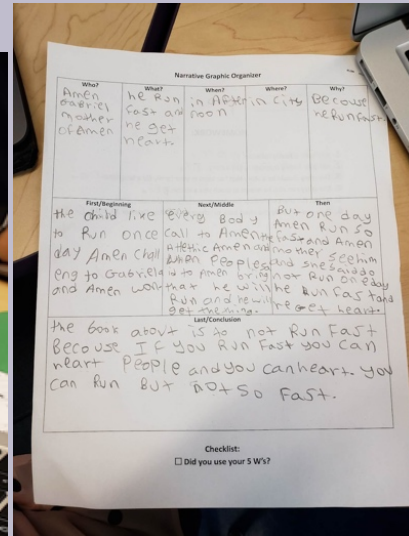 Narrative Graphic Organizer
Who?
Amen
Gabriel
mother
of Amen
What?
he Run
fast and
he get
heart
When?
in After
noon
Where?
in City
Why?
Becouse
he Run fast.
First/Beginning
the child like
to Run once
day Amen Chall
eng to Gabriel
and Amen won
Next/Middle
every Body
call to Amen the
Atethic Amen and
when People
id to Amen bring
that he will
Run and he will
get the thing.
Then
But one day
Amen Run so
fast and Amen
mother see him
and she said do
not Run one day
he Run fast and
he get heart.
Last/Conclusion
the book about is to not Run Fast
Becouse If you Run Fast you can
heart People and you can heart. you
can Run But not so Fast.
Checklist:
☐ Did you use your 5 W's?